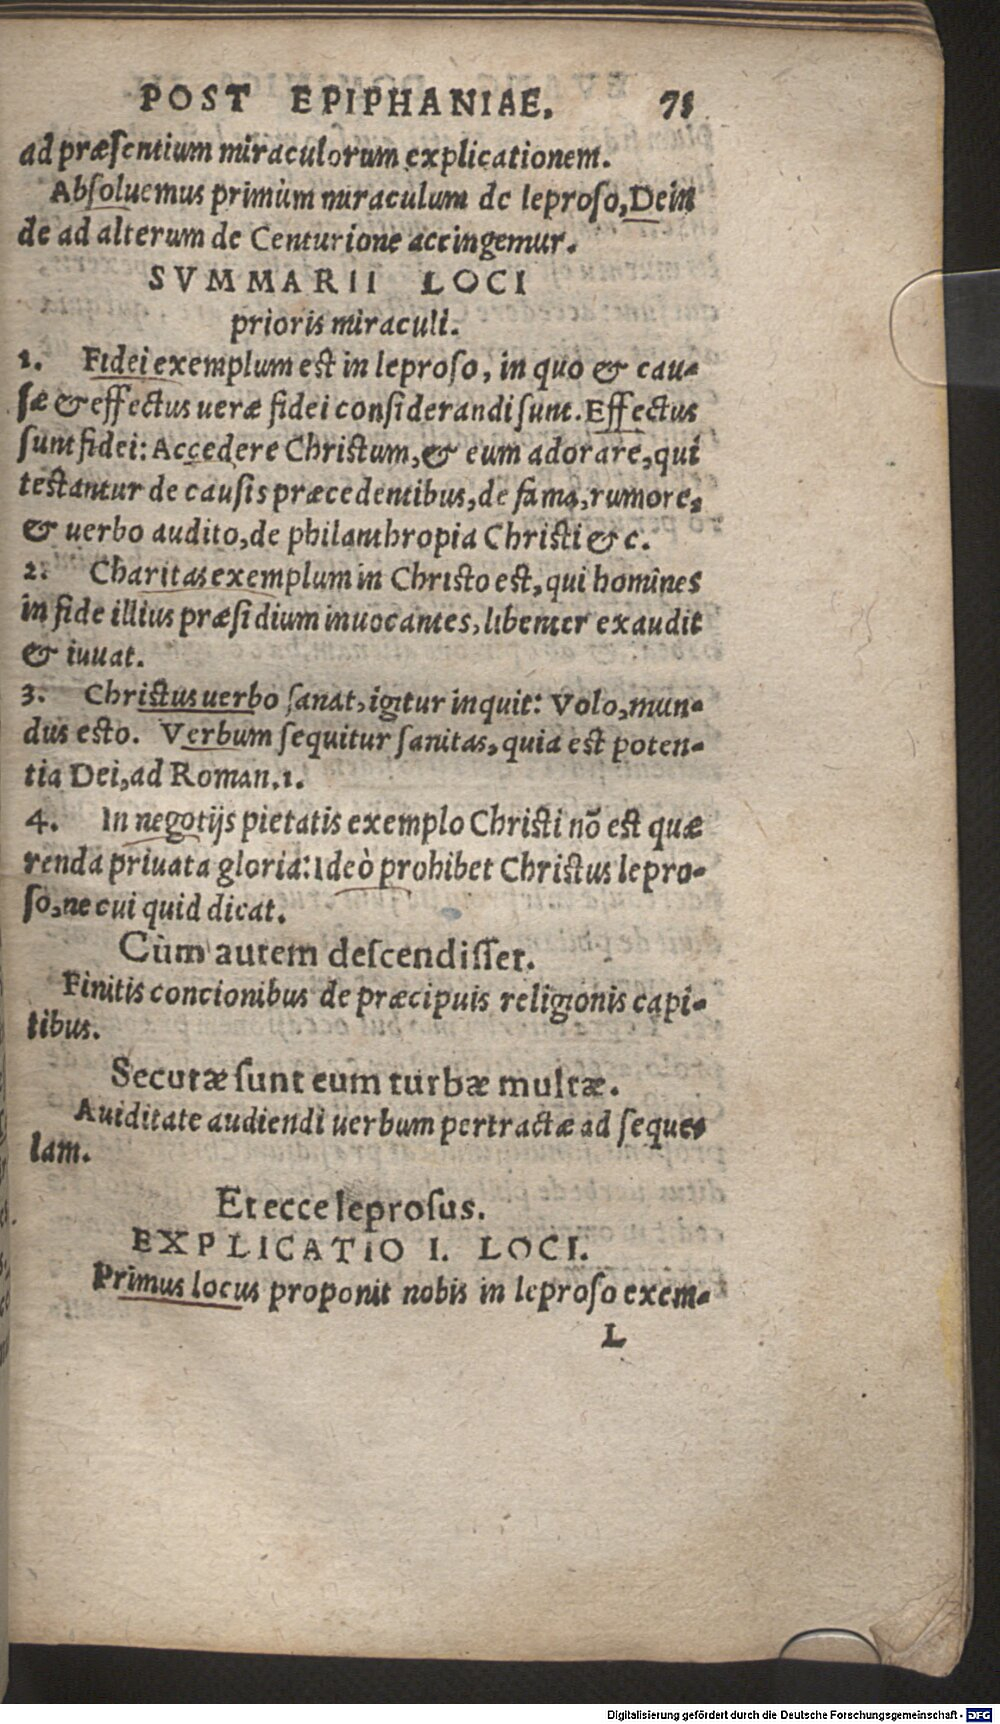 POST EPIPHANIAE. 78
ad præſentium miraculorum explicationem.
Abſoluemus primùm miraculum de leproſo, Dein
de ad alterum de Centurione accingemur.
SVMMARII LOCI
prioris miraculi.
1. Fidei exemplum est in leproſo, in quo & cau-
ſæ & effectus ueræ fidei conſiderandi ſunt. Effectus
ſunt fidei: Accedere Christum, & eum adorare, qui
testantur de cauſis præcedentibus, de fama, rumore,
& uerbo audito, de philanthropia Christi & c.
2. Charitas exemplum in Christo est, qui homines
in fide illius præſidium inuocantes, libenter exaudit
& iuuat.
3. Christus uerbo ſanat, igitur inquit: Volo, mun-
dus esto. Verbum ſequitur ſanitas, quia est poten-
tia Dei, ad Roman. 1.
4. In negotijs pietatis exemplo Christi nõ est quæ
renda priuata gloria: Ideò prohibet Christus lepro-
ſo, ne cui quid dicat.
Cùm autem deſcendiſſet.
Finitis concionibus de præcipuis religionis capi-
tibus.
Secutæ ſunt eum turbæ multæ.
Auiditate audiendi uerbum pertractæ ad ſeque-
lam.
Et ecce leproſus.
EXPLICATIO I. LOCI.
Primus locus proponit nobis in leproſo exem-
L
Digitalisierung gefördert durch die Deutsche Forschungsgemeinschaft - DFG